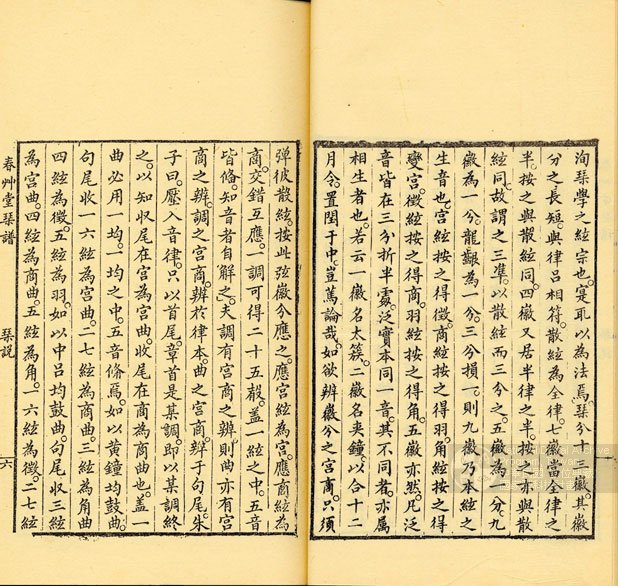 洵琴學之統宗也。寔耴以為法焉。琴分十三徽。其徽
分之長短。與律呂相符。散絃為全律。七徽當全律之
半。按之與散絃同。四徽又居半律之半。按之亦與散
絃同。故謂之三準。以散絃而三分之。五徽為一分。九
徽為一分。龍齦為一分。三分損一。則九徽乃本絃之
生音也。宮絃按之得徵。商絃按之得羽。角絃按之得
變宮。徵絃按之得商。羽絃按之得角。五徽亦然。凡泛
音皆在三分折半處。泛實本同一音。其不同者。亦屬
相生者也。若云一徽名太簇。二徽名夾鍾。以合十二
月令。置閏于中。豈篤論哉。如欲辨徽分之宮商。只須
彈彼散絃。按此弦徽分應之。應宮絃為宮。應商絃為
商。交錯互應。一調可得二十五聲。蓋一絃之中。五音
皆俻。知音者自解之。夫調有宮商之辨。則曲亦有宮
商之辨。調之宮商。辨於律本。曲之宮商。辨于句尾。朱
子曰。壓入音律。只以首尾。章首是某調。即以某調終
之。以知収尾在宮為宮曲。收尾在商為商曲也。蓋一
曲必用一均。一均之中。五音俻焉。如以黃鐘均鼓曲。
句尾收一六絃為宮曲。二七絃為商曲。三絃為角曲
四絃為徵。五絃為羽。如以中呂均鼓曲。句尾收三絃
為宮曲。四絃為商曲。五絃為角。一六絃為徵。二七絃
春艸堂琴譜 琴説 六